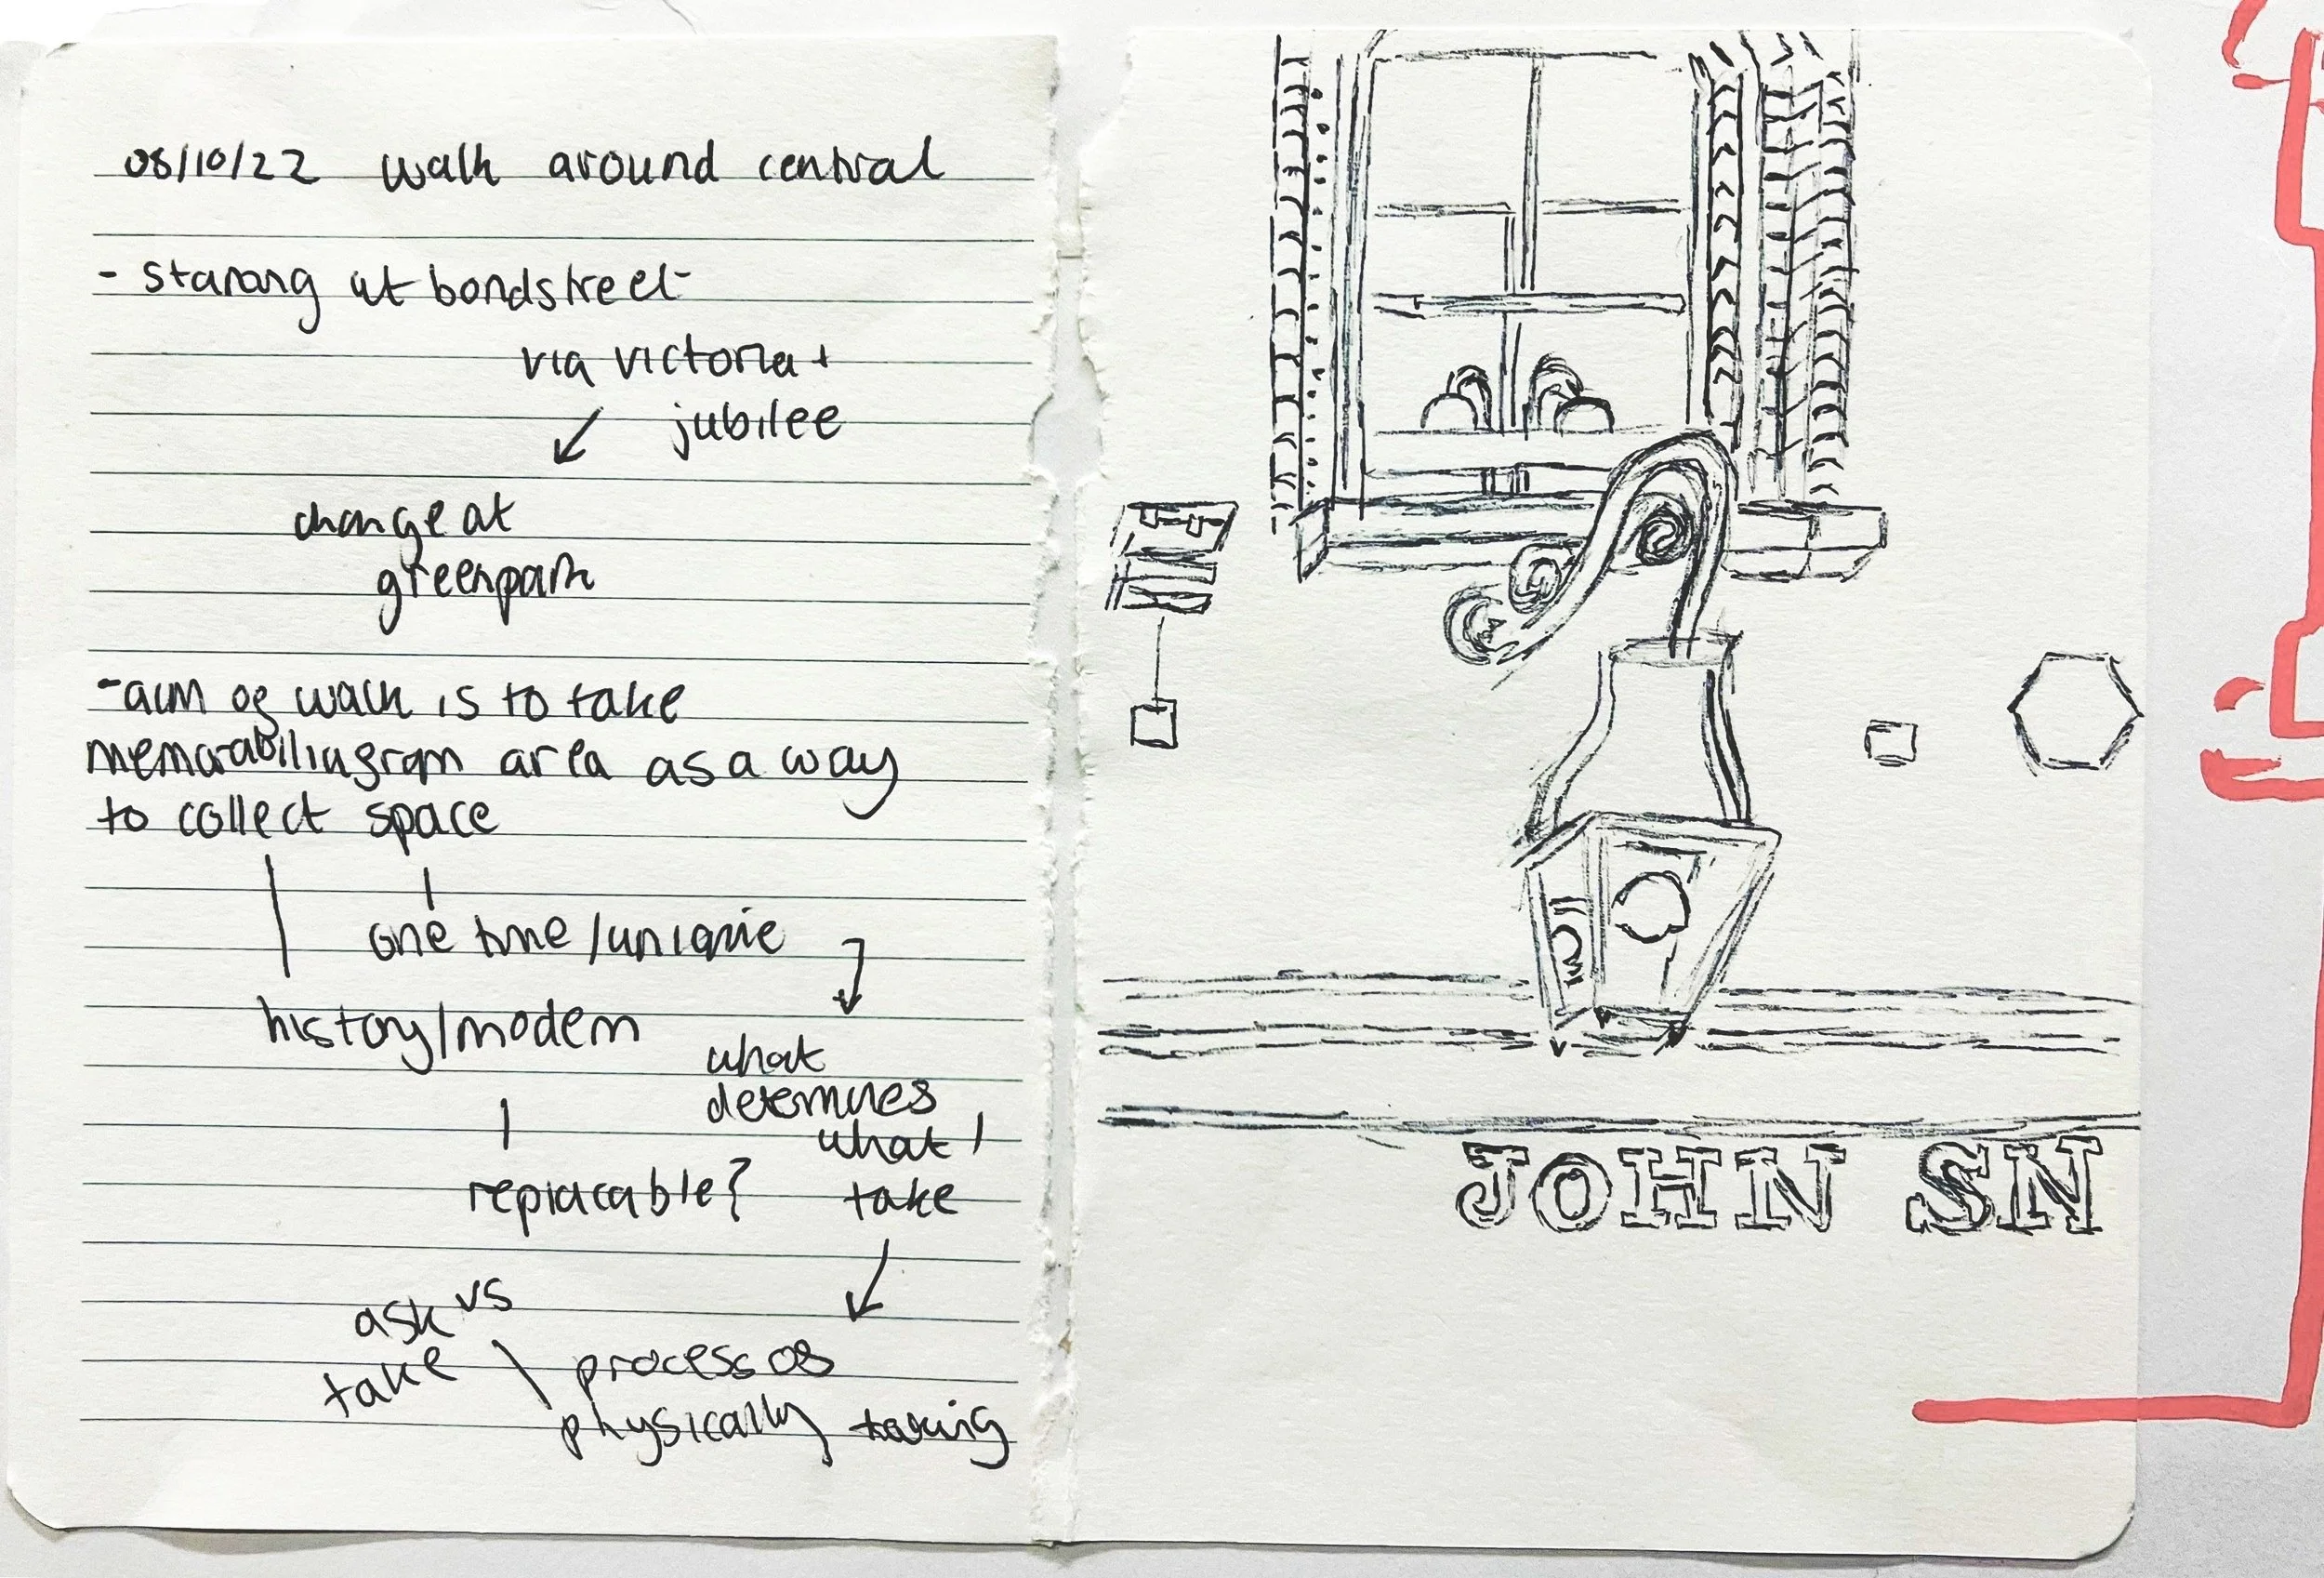 08/10/22 walk around central
- starting at bondstreet
via victoria +
jubilee
change at
greenpark
- aim of walk is to take
memorabilia from area as a way
to collect space
one time / unique
history/modern
what
determines
what I
replacable? take
ask vs
take
process of
physically taking
JOHN SN